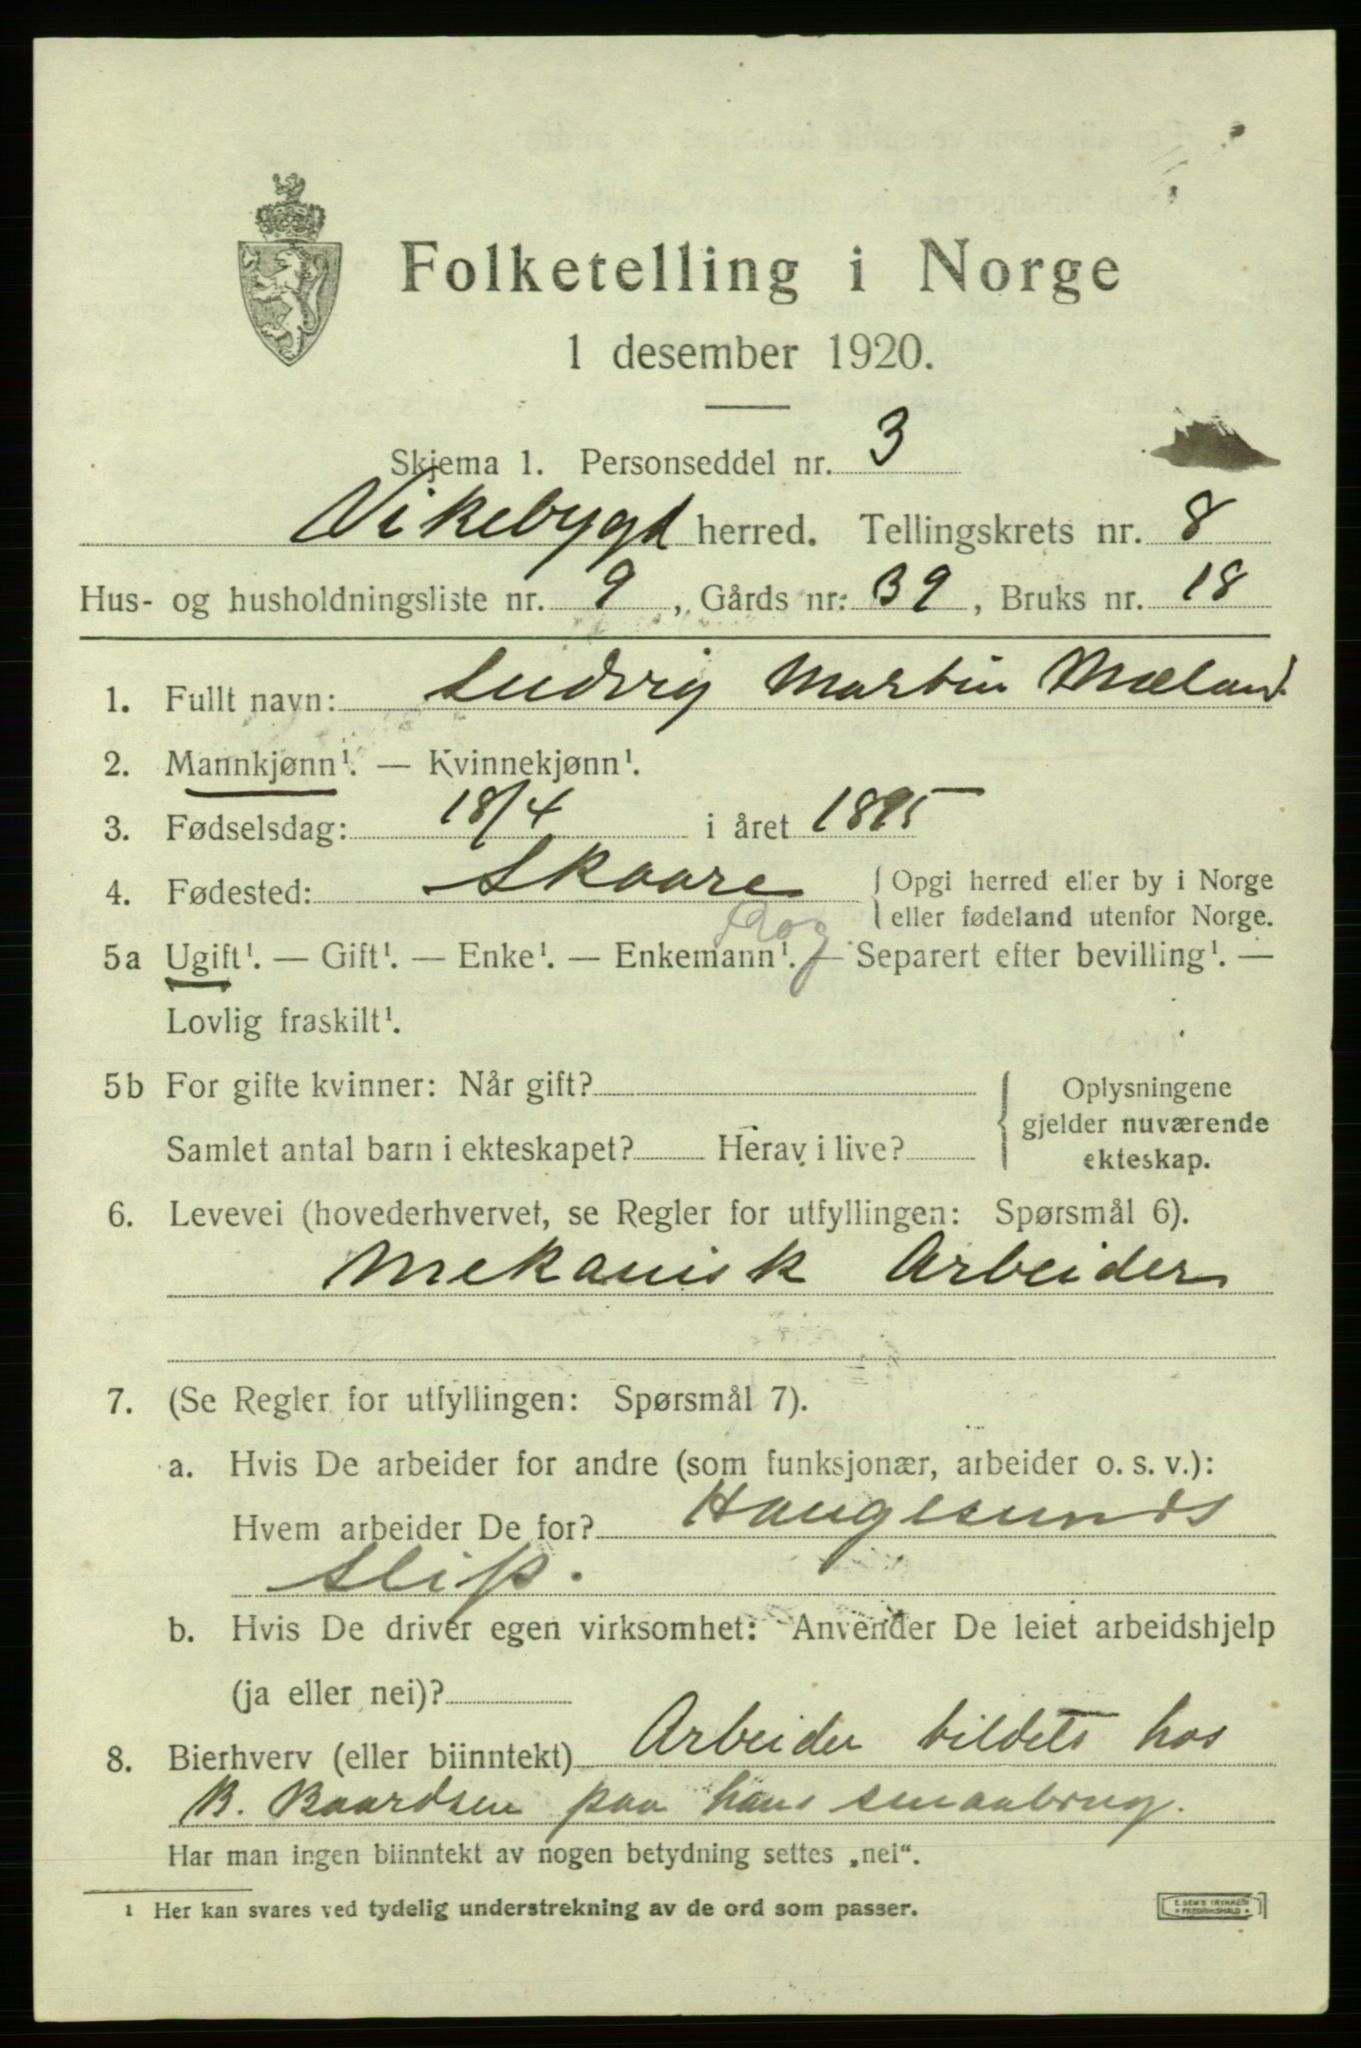 Folketelling i Norge
1 desember 1920.
Skjema 1. Personseddel nr. 3
Vikebygd herred. Tellingskrets nr. 8
Hus- og husholdningsliste nr. 9, Gårds nr. 39, Bruks nr. 18
1. Fullt navn: Ludvig Martin Mæland
2. Mannkjønn¹. — Kvinnekjønn¹.
3. Fødselsdag: 18/4 i året 1895
4. Fødested: Skaare { Opgi herred eller by i Norge
eller fødeland utenfor Norge.
Rog
5a Ugift¹. — Gift¹. — Enke¹. — Enkemann¹. — Separert efter bevilling¹. —
Lovlig fraskilt¹.
5b For gifte kvinner: Når gift? { Oplysningene
gjelder nuværende
Samlet antal barn i ekteskapet? Herav i live? ekteskap.
6. Levevei (hovederhvervet, se Regler for utfyllingen: Spørsmål 6).
Mekanisk Arbeider
7. (Se Regler for utfyllingen: Spørsmål 7).
a. Hvis De arbeider for andre (som funksjonær, arbeider o. s. v.):
Hvem arbeider De for? Haugesunds
Slip.
b. Hvis De driver egen virksomhet: Anvender De leiet arbeidshjelp
(ja eller nei)?
8. Bierhverv (eller biinntekt) Arbeider tildels hos
B. Baardsen paa hans smaabrug.
Har man ingen biinntekt av nogen betydning settes „nei“.
¹ Her kan svares ved tydelig understrekning av de ord som passer.